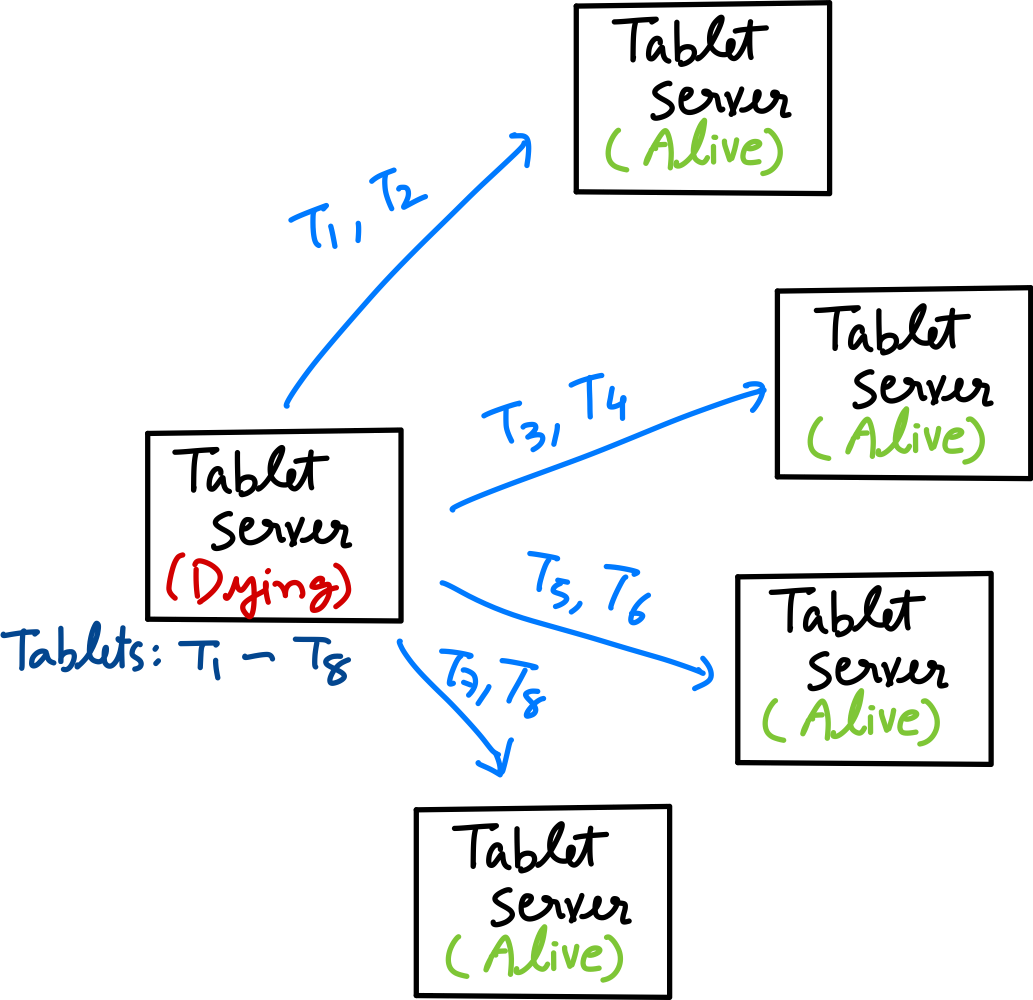 Tablet
Server
(Alive)
T1, T2
Tablet
Server
(Alive)
T3, T4
Tablet
Server
(Dying)
Tablets: T1 - T8
T5, T6
Tablet
Server
(Alive)
T7, T8
Tablet
Server
(Alive)